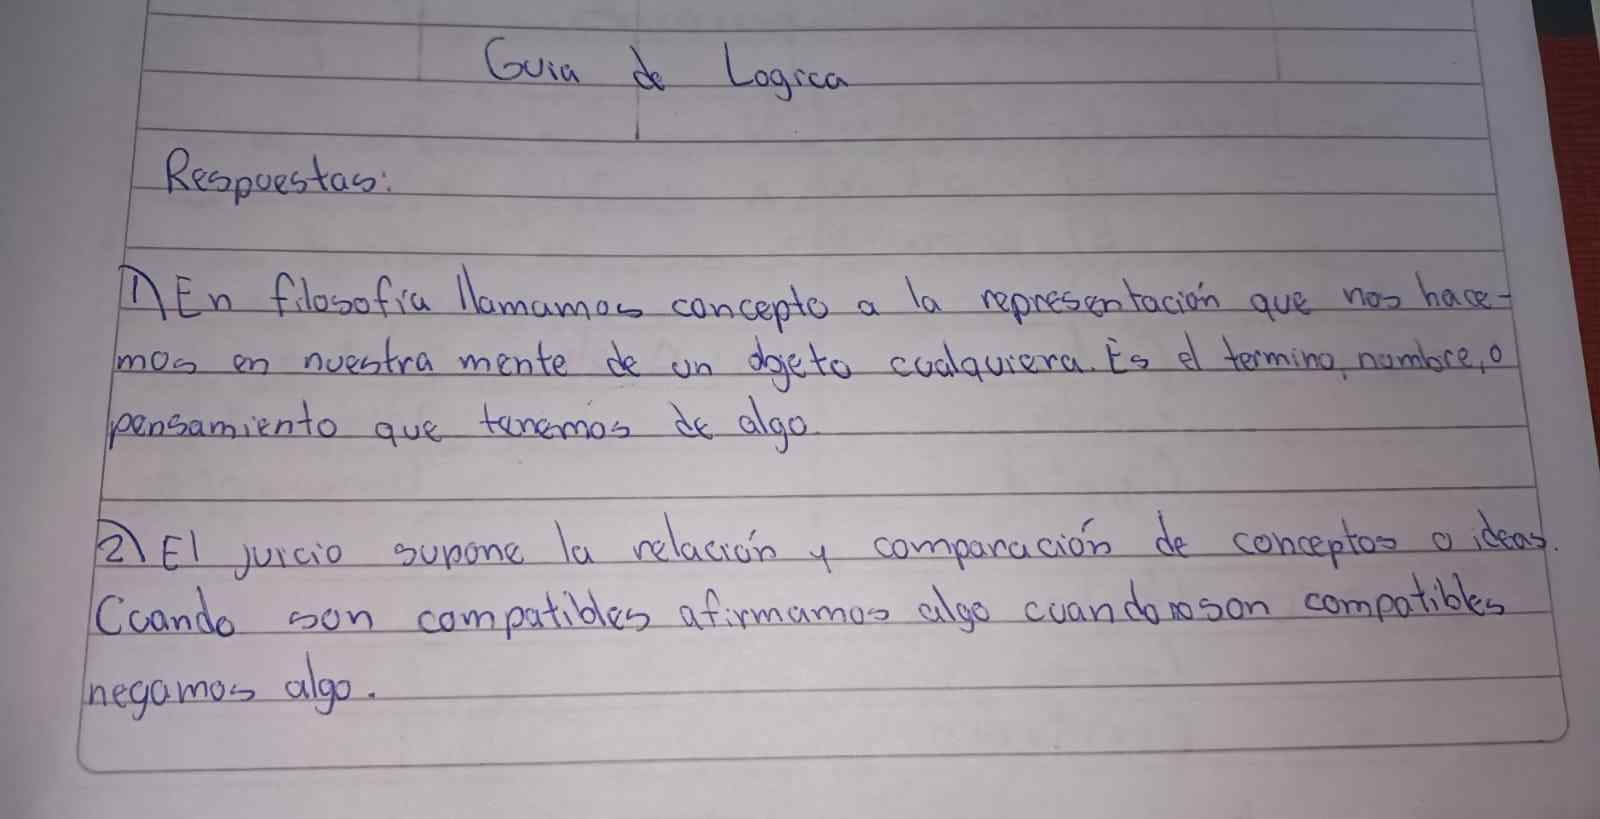 Guia de Logica
Respuestas:
1) En filosofía llamamos concepto a la representación que nos hace-
mos en nuestra mente de un objeto cualquiera. Es el termino, nombre, o
pensamiento que tenemos de algo
2) El juicio supone la relación y comparación de conceptos o ideas.
Cuando son compatibles afirmamos algo cuando no son compatibles
negamos algo.